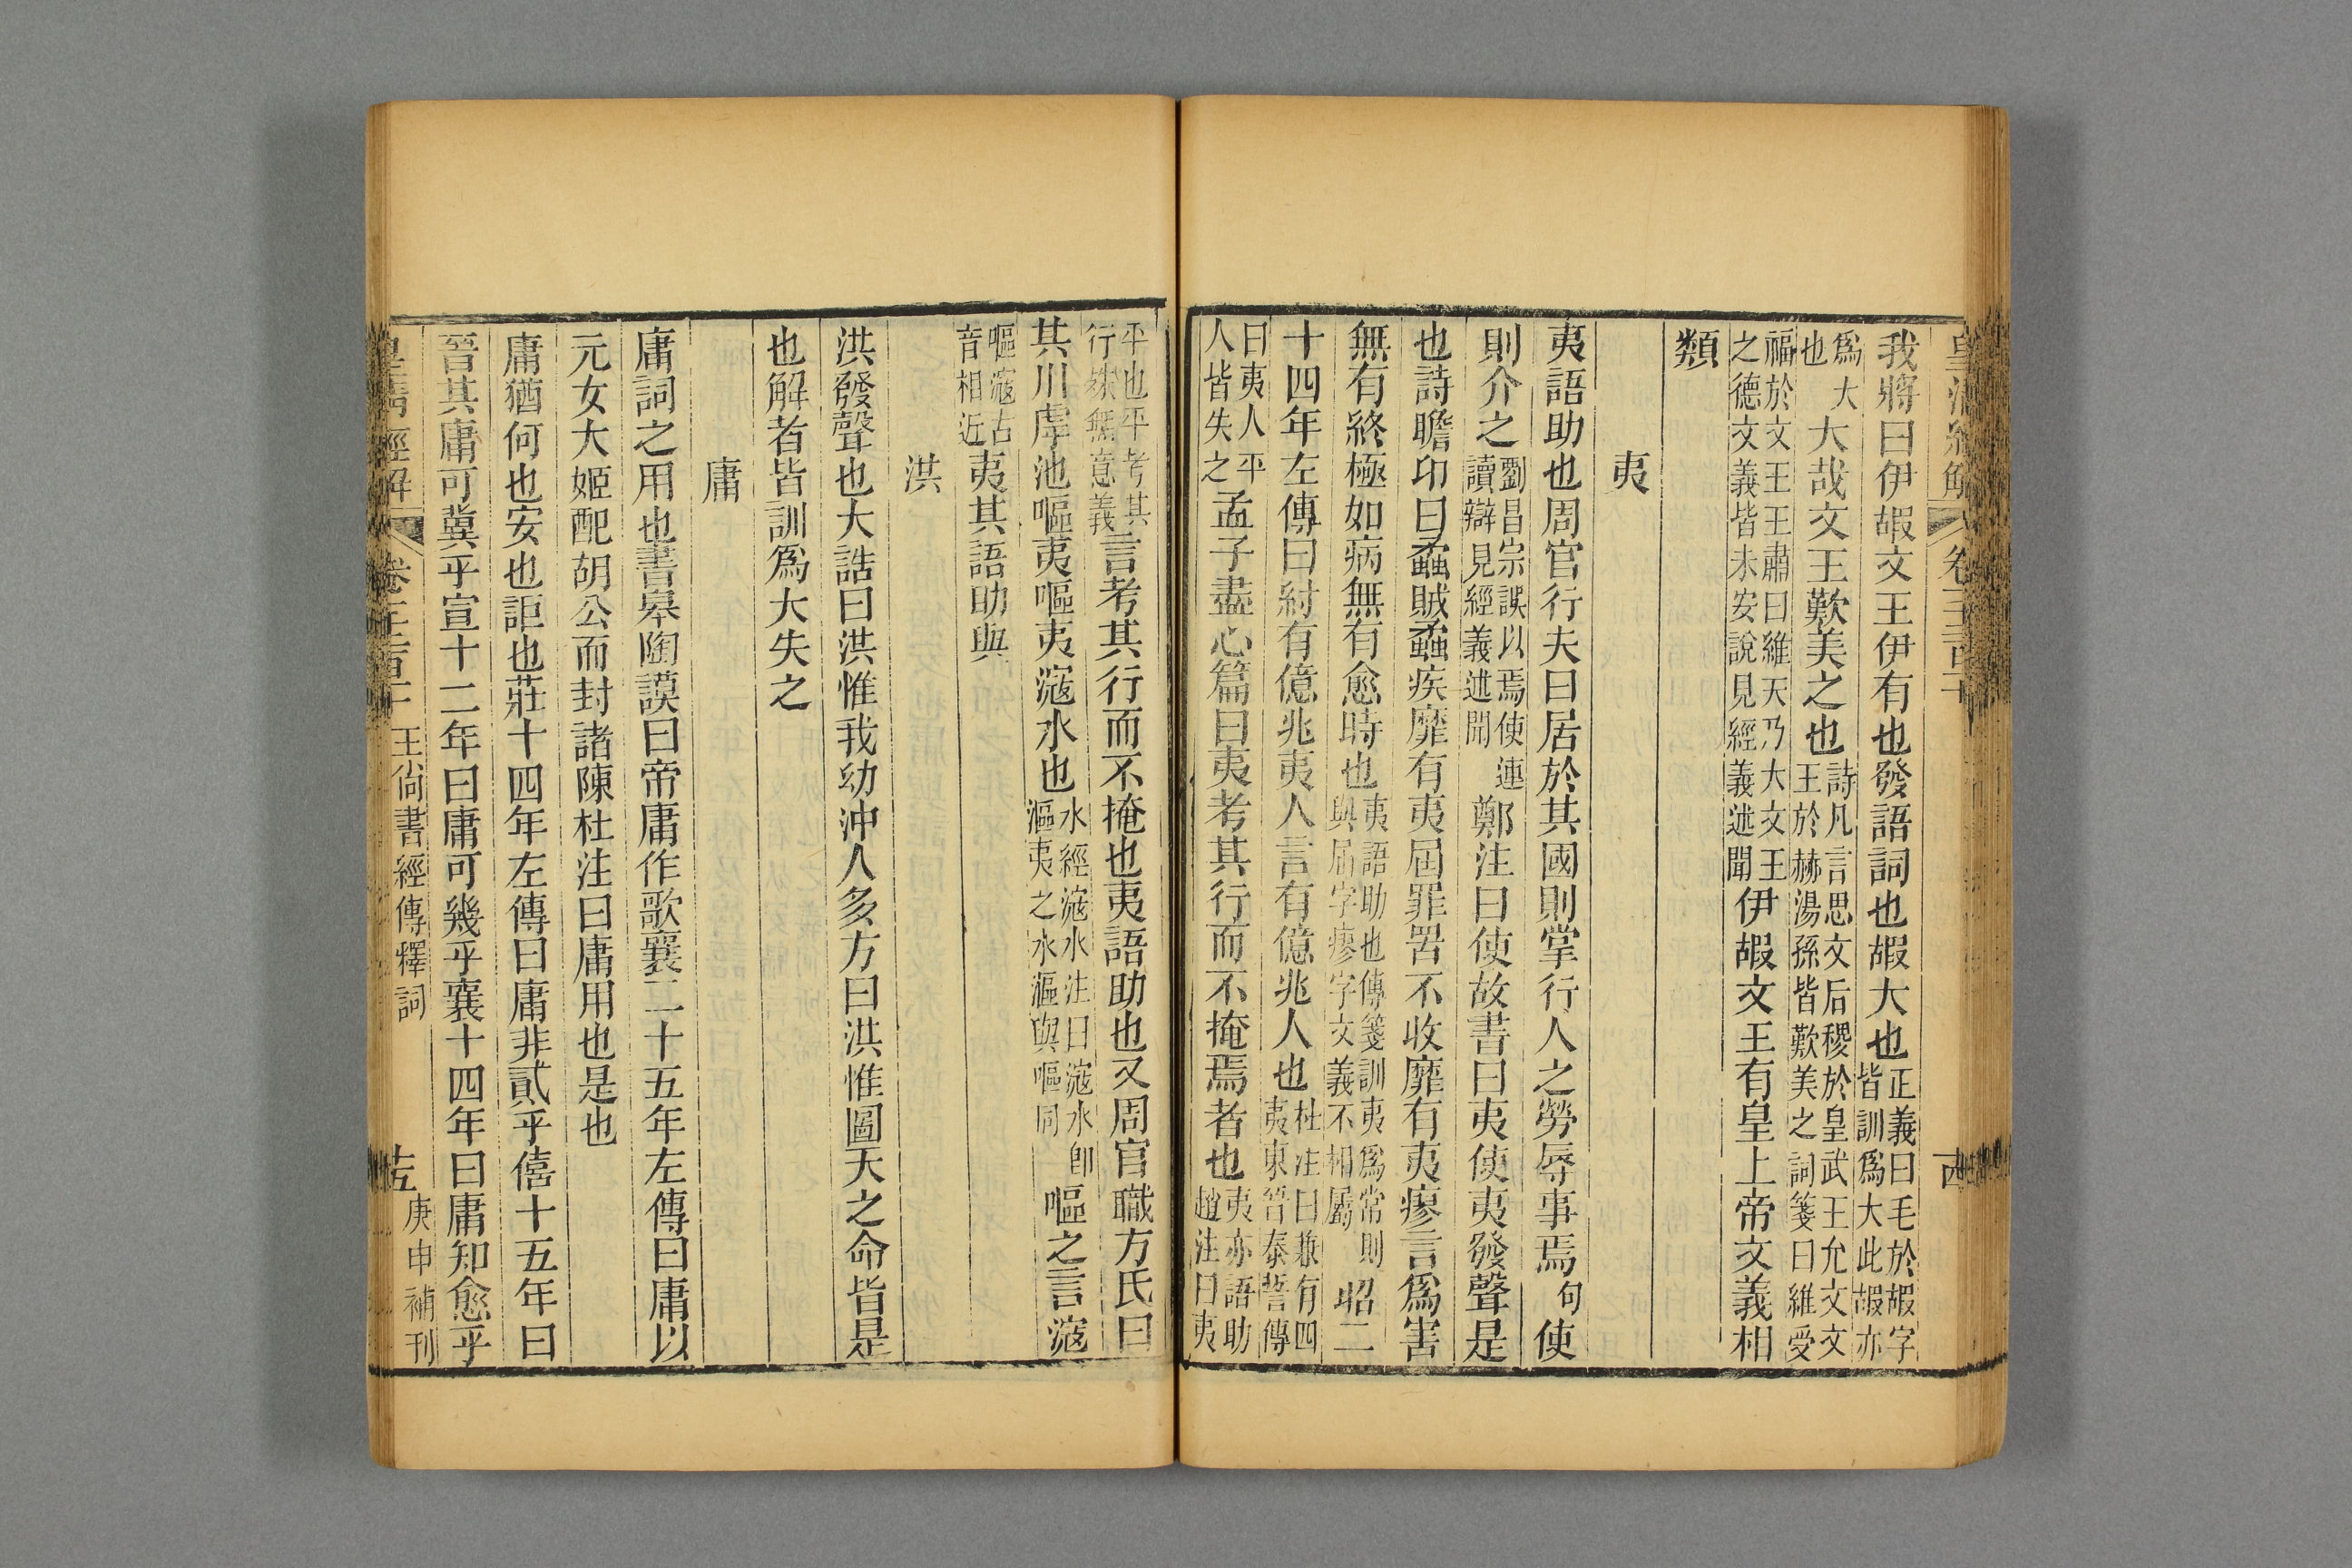 皇清經解
我將曰伊嘏文王伊有也發語詞也嘏大也正義曰毛於嘏字皆訓爲大此嘏亦
爲大也大哉文王歎美之也詩凡言思文后稷於皇武王允文文王於赫湯孫皆歎美之詞箋曰維受
福於文王王肅曰維天乃大文王之德文義皆未安說見經義述聞伊嘏文王有皇上帝文義相
類
夷
夷語助也周官行夫曰居於其國則掌行人之勞辱事焉句使
則介之劉昌宗誤以焉使連讀辯見經義述聞鄭注曰使故書曰夷使夷發聲是
也詩瞻卬曰蟊賊蟊疾靡有夷屆罪罟不收靡有夷瘳言爲害
無有終極如病無有愈時也夷語助也傳箋訓夷爲常則與屆字瘳字文義不相屬昭二
十四年左傳曰紂有億兆夷人言有億兆人也杜注曰兼有四夷東晉泰誓傳
曰夷人平人皆失之孟子盡心篇曰夷考其行而不掩焉者也夷亦語助趙注曰夷
平也平考其行殊無意義言考其行而不掩也夷語助也又周官職方氏曰
其川虖池嘔夷嘔夷滱水也水經滱水注曰滱水卽漚夷之水漚與嘔同嘔之言滱
嘔滱古音相近夷其語助與
洪
洪發聲也大誥曰洪惟我幼沖人多方曰洪惟圖天之命皆是
也解者皆訓爲大失之
庸
庸詞之用也書皋陶謨曰帝庸作歌襄二十五年左傳曰庸以
元女大姬配胡公而封諸陳杜注曰庸用也是也
庸猶何也安也詎也莊十四年左傳曰庸非貳乎僖十五年曰
晉其庸可冀乎宣十二年曰庸可幾乎襄十四年曰庸知愈乎
王尙書經傳釋詞
庚申補刊